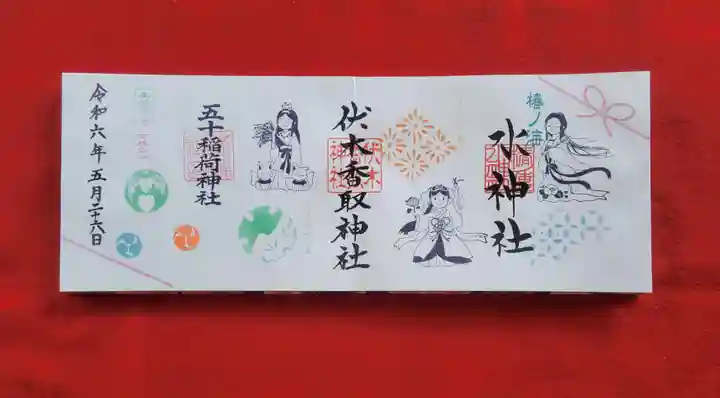 椿ノ海
水神社
伏木香取神社
伏木
神社
五十稲荷神社
令和六年五月二十六日